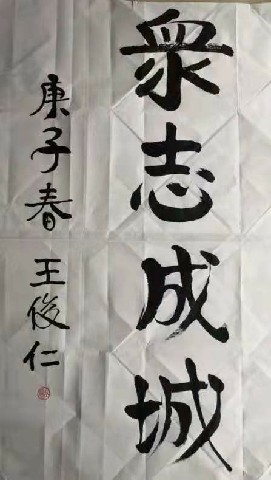 眾志成城
庚子春 王俊仁